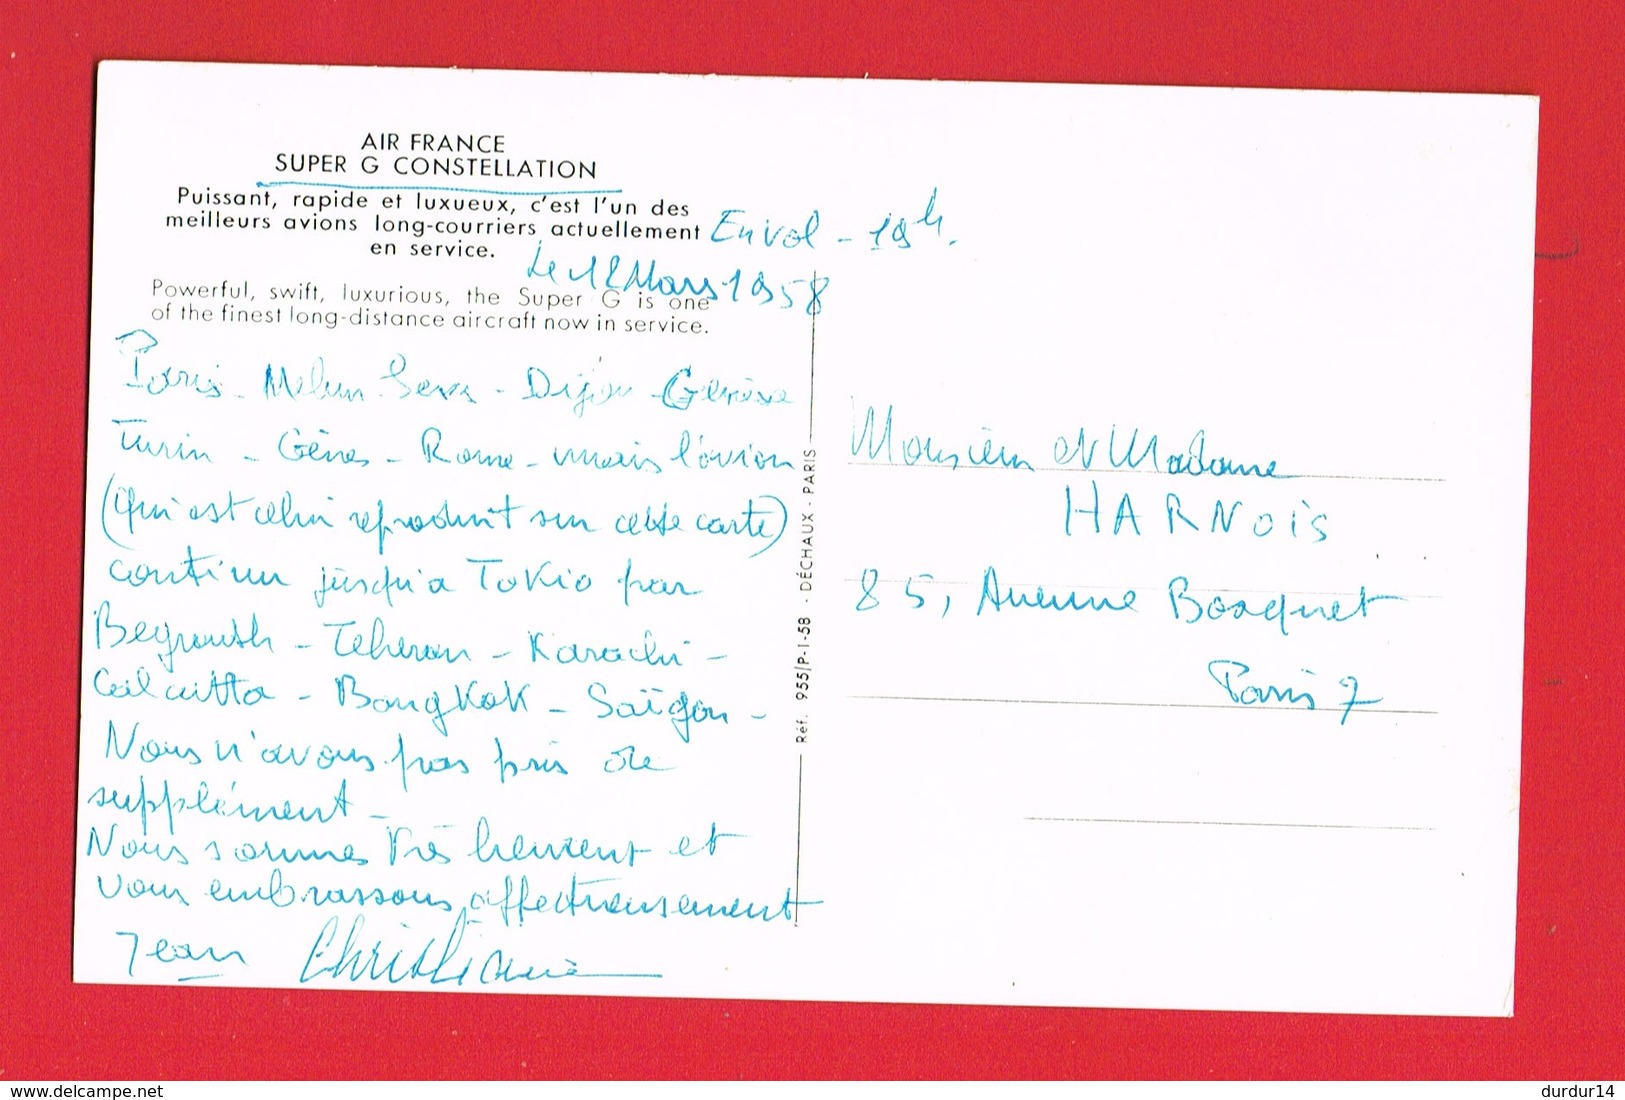 AIR FRANCE
SUPER G CONSTELLATION
Puissant, rapide et luxueux, c'est l'un des
meilleurs avions long-courriers actuellement
en service.
Powerful, swift, luxurious, the Super G is one
of the finest long-distance aircraft now in service.
Envol - 19h.
Le 12 Mars 1958
Paris - Melun Sens - Dijon - Genève
Turin - Gênes - Rome - mais l'avion
(qui est celui reproduit sur cette carte)
continu jusqu'a Tokio par
Beyrouth - Teheran - Karachi -
Calcutta - BangKok - Saïgon -
Nous n'avons pas pris de
supplément -
Nous sommes très heureux et
vous embrassons affectueusement
Jean Christiane
Réf. 955/P-1-58 - DÉCHAUX - PARIS
Monsieur et Madame
HARNOIS
85, Avenue Bosquet
Paris 7
https://www.delcampe.net
durdur14